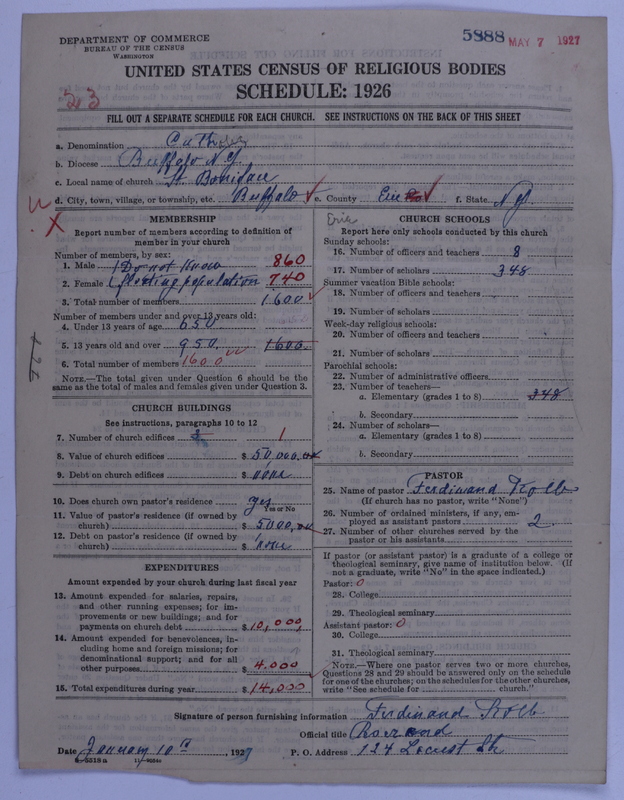 DEPARTMENT OF COMMERCE
BUREAU OF THE CENSUS
WASHINGTON
5888 MAY 7 1927
UNITED STATES CENSUS OF RELIGIOUS BODIES
SCHEDULE: 1926
23
FILL OUT A SEPARATE SCHEDULE FOR EACH CHURCH. SEE INSTRUCTIONS ON THE BACK OF THIS SHEET
a. Denomination Catholic
b. Diocese Buffalo N.Y.
c. Local name of church St. Boniface
d. City, town, village, or township, etc. Buffalo e. County Erie f. State N.Y.
Erie
MEMBERSHIP
Report number of members according to definition of
member in your church
Number of members, by sex:
1. Male (Do not Know 860
2. Female (floating population 740
3. Total number of members 1600
Number of members under and over 13 years old:
4. Under 13 years of age 650
5. 13 years old and over 950 1600
6. Total number of members 1600
NOTE.—The total given under Question 6 should be the
same as the total of males and females given under Question 3.
CHURCH BUILDINGS
See instructions, paragraphs 10 to 12
7. Number of church edifices 1
8. Value of church edifices $ 50,000.00
9. Debt on church edifices $ none
10. Does church own pastor's residence yes
Yes or No
11. Value of pastor's residence (if owned by
church) $ 5000,00
12. Debt on pastor's residence (if owned by
church) $ none
EXPENDITURES
Amount expended by your church during last fiscal year
13. Amount expended for salaries, repairs,
and other running expenses; for im-
provements or new buildings; and for
payments on church debt $ 10,000
14. Amount expended for benevolences, in-
cluding home and foreign missions; for
denominational support; and for all
other purposes $ 4.000
15. Total expenditures during year $ 14,000
CHURCH SCHOOLS
Report here only schools conducted by this church
Sunday schools:
16. Number of officers and teachers 8
17. Number of scholars 348
Summer vacation Bible schools:
18. Number of officers and teachers
19. Number of scholars
Week-day religious schools:
20. Number of officers and teachers
21. Number of scholars
Parochial schools:
22. Number of administrative officers
23. Number of teachers—
a. Elementary (grades 1 to 8) 348
b. Secondary
24. Number of scholars—
a. Elementary (grades 1 to 8)
b. Secondary
PASTOR
25. Name of pastor Ferdinand Kolb
(If church has no pastor, write "None")
26. Number of ordained ministers, if any, em-
ployed as assistant pastors 2
27. Number of other churches served by the
pastor or his assistants
If pastor (or assistant pastor) is a graduate of a college or
theological seminary, give name of institution below. (If
not a graduate, write "No" in the space indicated.)
Pastor: 0
28. College
29. Theological seminary
Assistant pastor: 0
30. College
31. Theological seminary
NOTE.—Where one pastor serves two or more churches,
Questions 28 and 29 should be answered only on the schedule
for one of the churches; on the schedules for the other churches,
write "See schedule for church."
Signature of person furnishing information Ferdinand Kolb
Official title
Date January 10th, 1927 P. O. Address 124 Locust St
8-5318a